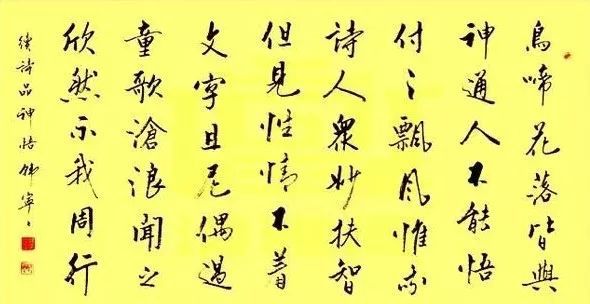 鳥啼花落皆與
神通人不能悟
付之飄風惟我
詩人眾妙扶智
但見性情不着
文字宣尼偶過
童歌滄浪聞之
欣然示我周行
續詩品神悟